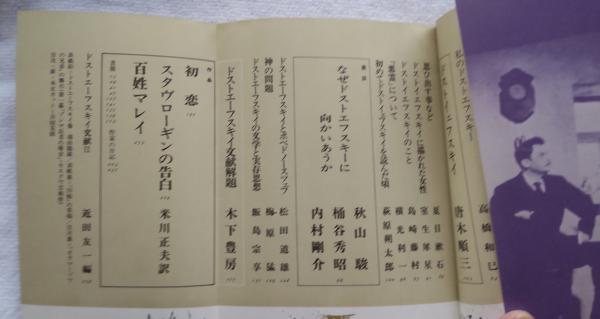 私のドストエフスキー
高橋和巳
ドストイエフスキイ
唐木順三
思ひ出す事など
夏目漱石
ドストイエフスキイに描かれた女性
室生犀星
ドストイエフスキイのこと
島崎藤村
「悪霊」について
横光利一
初めてドストイェフスキイを読んだ頃
萩原朔太郎
座談
なぜドストエフスキーに
向かいあうか
秋山駿
桶谷秀昭
内村剛介
ドストエーフスキイとポベドノースツェフ
松田道雄
神の問題
梅原猛
ドストエーフスキイの文学と実存思想
飯島宗享
ドストエーフスキイ文献解題
木下豊房
作品
初恋
スタヴローギンの告白
米川正夫訳
百姓マレイ
作家の日記
ドストエーフスキイ文献目
近田友一編